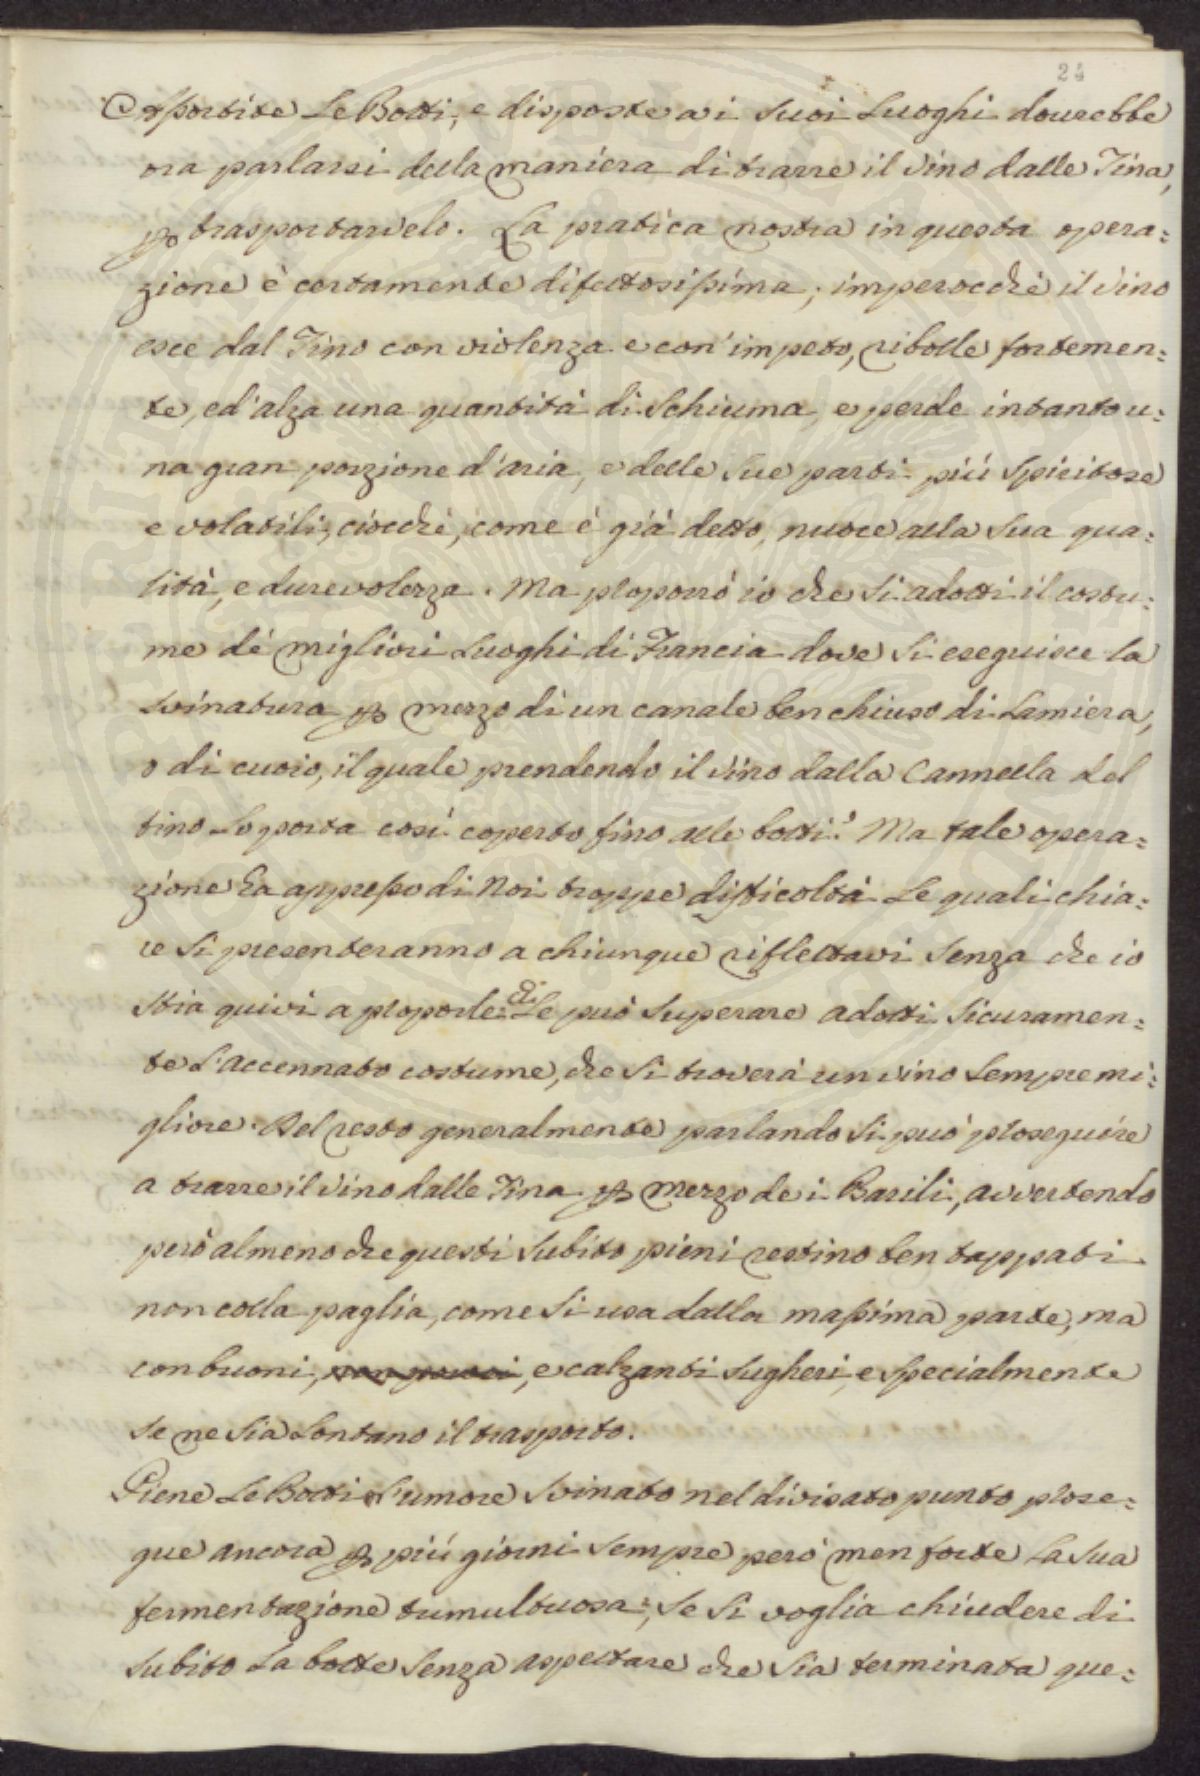 24
Asportite Le Botti, e disposte a i suoi Luoghi dourebbe
ora parlarsi della maniera di trarre il Vino dalle Tina,
p trasportarvelo. La pratica nostra in questa opera=
zione è certamente difettosissima; imperocchè il Vino
esce dal Tino con violenza e con impeto, ribolle fortemen=
te, ed alza una quantità di Schiuma, e perde intanto u=
na gran porzione d'aria, e delle sue parti più spiritose
e volatili, ciocchè, come è già detto, nuoce alla sua qua=
lità, e durevolezza. Ma proporrò io che si adotti il costu=
me dè migliori Luoghi di Francia dove si eseguisce la
svinatura p mezzo di un canale ben chiuso di Lamiera,
o di cuoio, il quale prendendo il Vino dalla Cannella del
tino Lo porta così coperto fino alle botti? Ma tale opera=
zione ha appresso di Noi troppe difficoltà Le quali chia=
re si presenteranno a chiunque riflettavi senza che io
stia quivi a proporle: Chi Le può superare adotti sicuramen=
te L'accennato costume, che si troverà un vino sempre mi=
gliore. Del resto generalmente parlando si può proseguire
a trarre il Vino dalle Tina p mezzo de i Barili, avvertendo
però almeno che questi subito pieni restino ben tappati
non colla paglia, come si usa dalla massima parte, ma
con buoni, non porosi, e calzanti sugheri, e specialmente
se ne sia Lontano il trasporto.
Piene Le Botti L'umore svinato nel divisato punto prose=
gue ancora p più giorni sempre però men forte La sua
fermentazione tumultuosa; se si voglia chiudere di
subito La botte senza aspettare che sia terminata que=